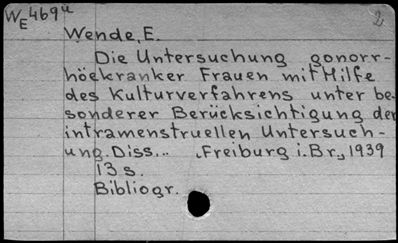 WE469a
2
Wende, E.
Die Untersuchung gonorr-
höekranker Frauen mit Hilfe
des Kulturverfahrens unter be-
sonderer Berücksichtigung der
intramenstruellen Untersuch-
ung. Diss... Freiburg i. Br., 1939
13 s.
Bibliogr.